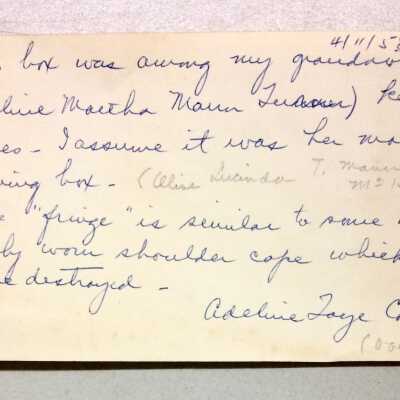 4/11/53
box was among my grandmo
line Martha Mann Turner) ke
es - I assume it was her mo
ing box - (Olive Lucinda T. Mann
"fringe" is similar to some
by worn shoulder cape which
e destroyed -
Adeline Faye Co